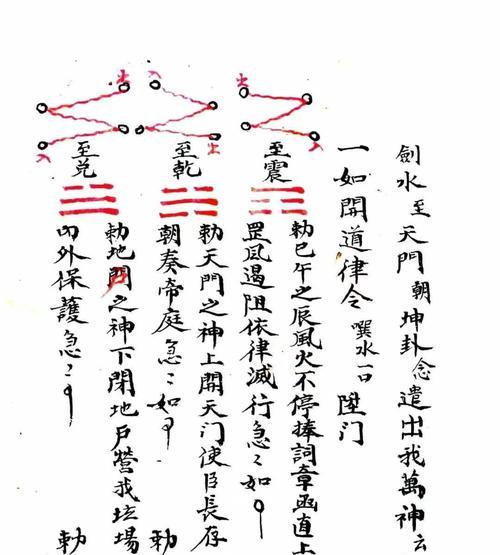 劍水至天門朝坤卦念遣出我萬神
一如開道律令 噀水一口 陞门
至震
勅巳午之辰風火不停捧詞章函直上
罡風遏阻依律滅行急〻如
至乾
勅天門之神上開天门使臣長存
朝奏帝庭急〻如
勅
至兑
勅地户之神下閉地户營我坛場
内外保護急〻
勅